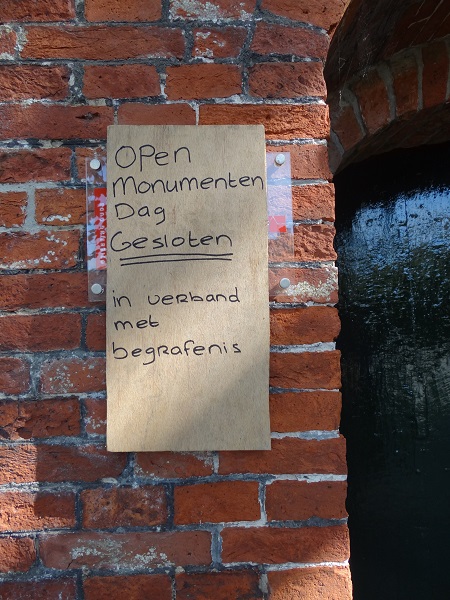 Open
Monumenten
Dag
Gesloten
in verband
met
begrafenis